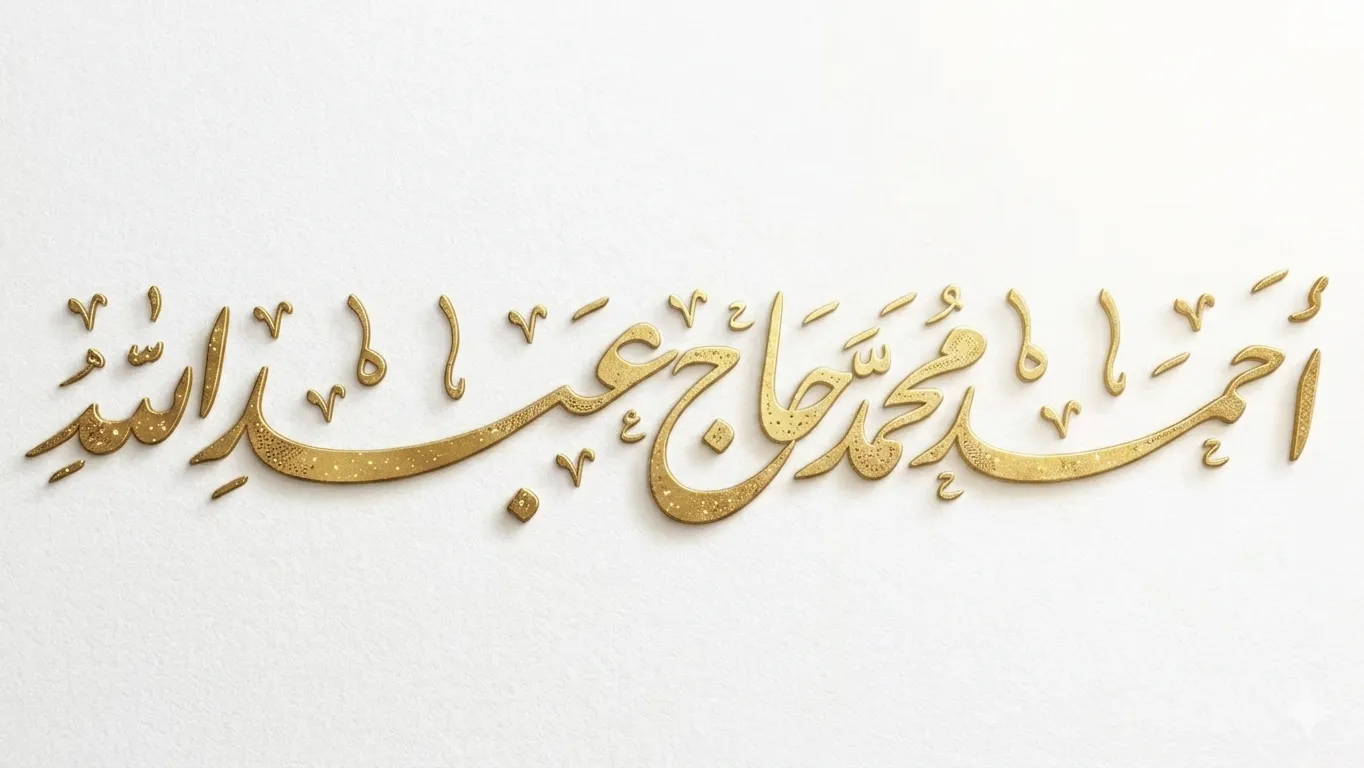 أَحْمَد مُحَمَّد حَاج عَبدِ اللّٰهِ